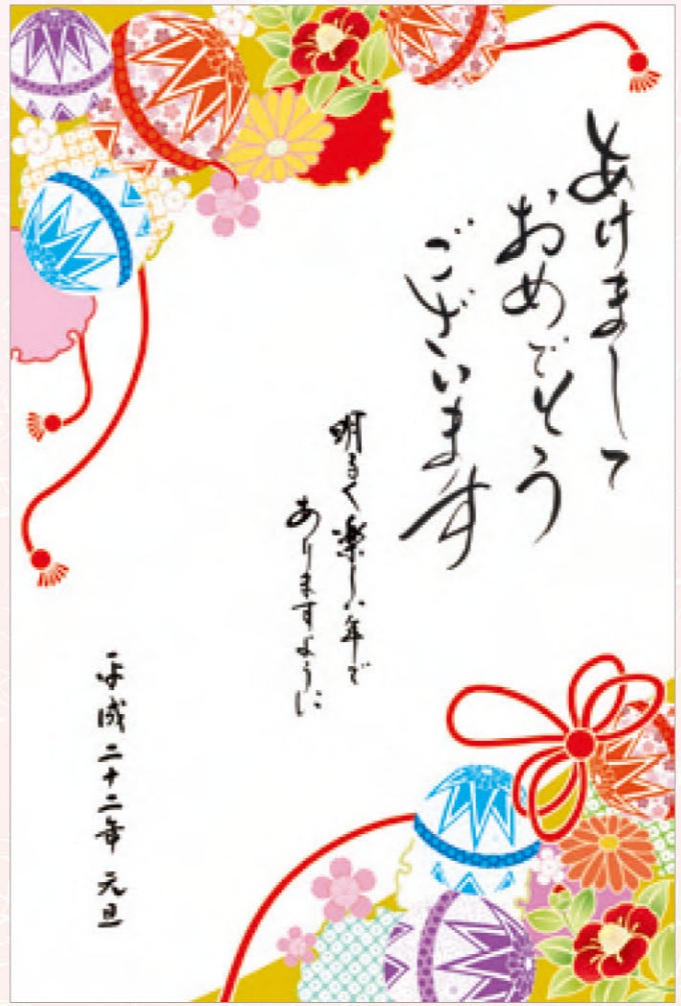 あけまして
おめでとう
ございます
明るく楽しい年で
ありますように
平成二十二年 元旦